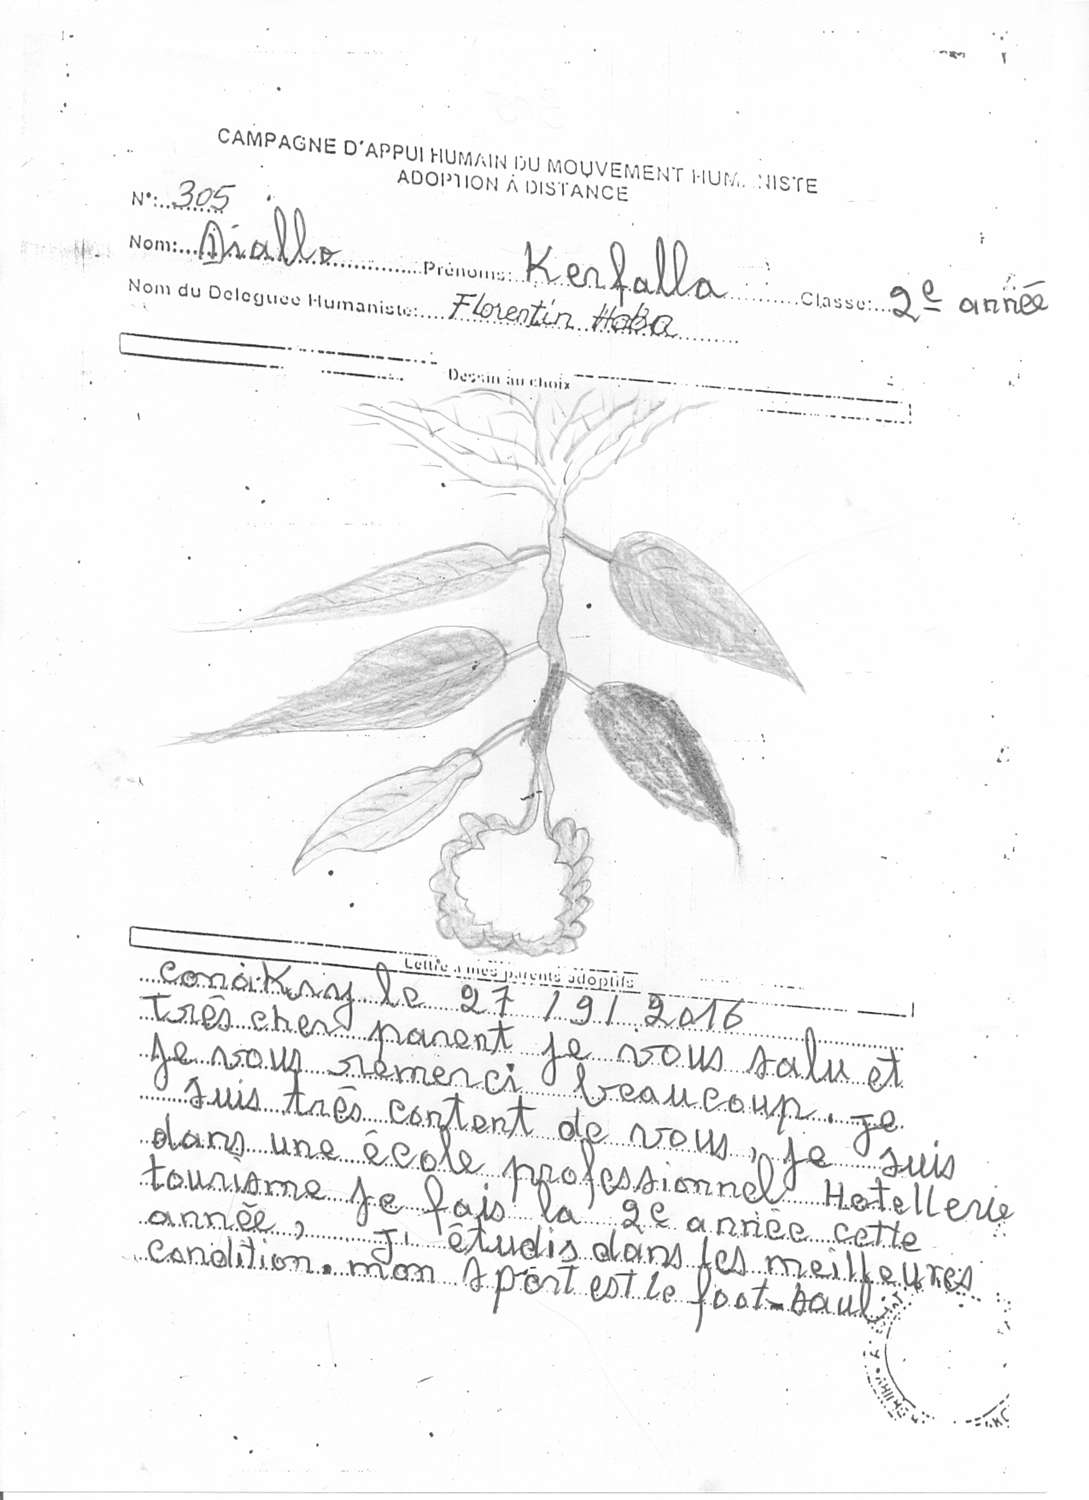 CAMPAGNE D'APPUI HUMAIN DU MOUVEMENT HUMANISTE
ADOPTION À DISTANCE
N°: 305
Nom: Diallo Prénoms: Kerfalla Classe: 2e année
Nom du Deleguee Humaniste: Florentin HoBa
Dessin au choix
Lettre à mes parents adoptifs
Conakry le 27 / 9 / 2016
très cher parent je vous salu et
je vous remerci beaucoup. Je
suis très content de vous, je suis
dans une école professionnel Hotellerie
tourisme je fais la 2e année cette
année, J' étudis dans les meilleures
condition. mon sport est le foot-baul.